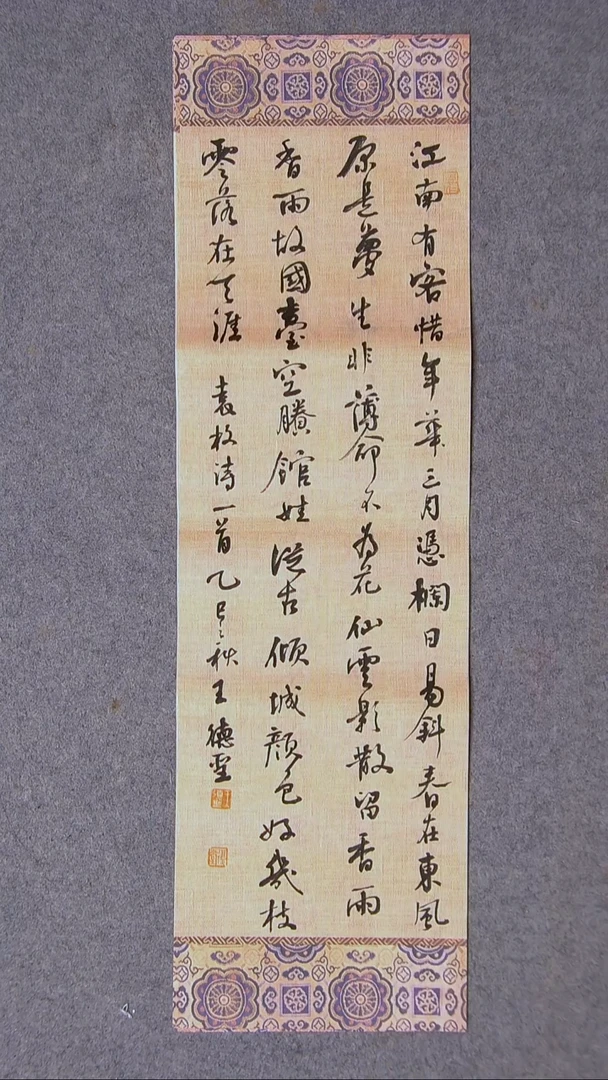 江南有客惜年華三月憑欄日易斜春在東風
原是夢生非薄命不為花仙雲影散留香雨
香雨故國臺空賸館娃從古傾城顏色好幾枝
零落在天涯 袁枚詩一首乙巳之秋王德聖